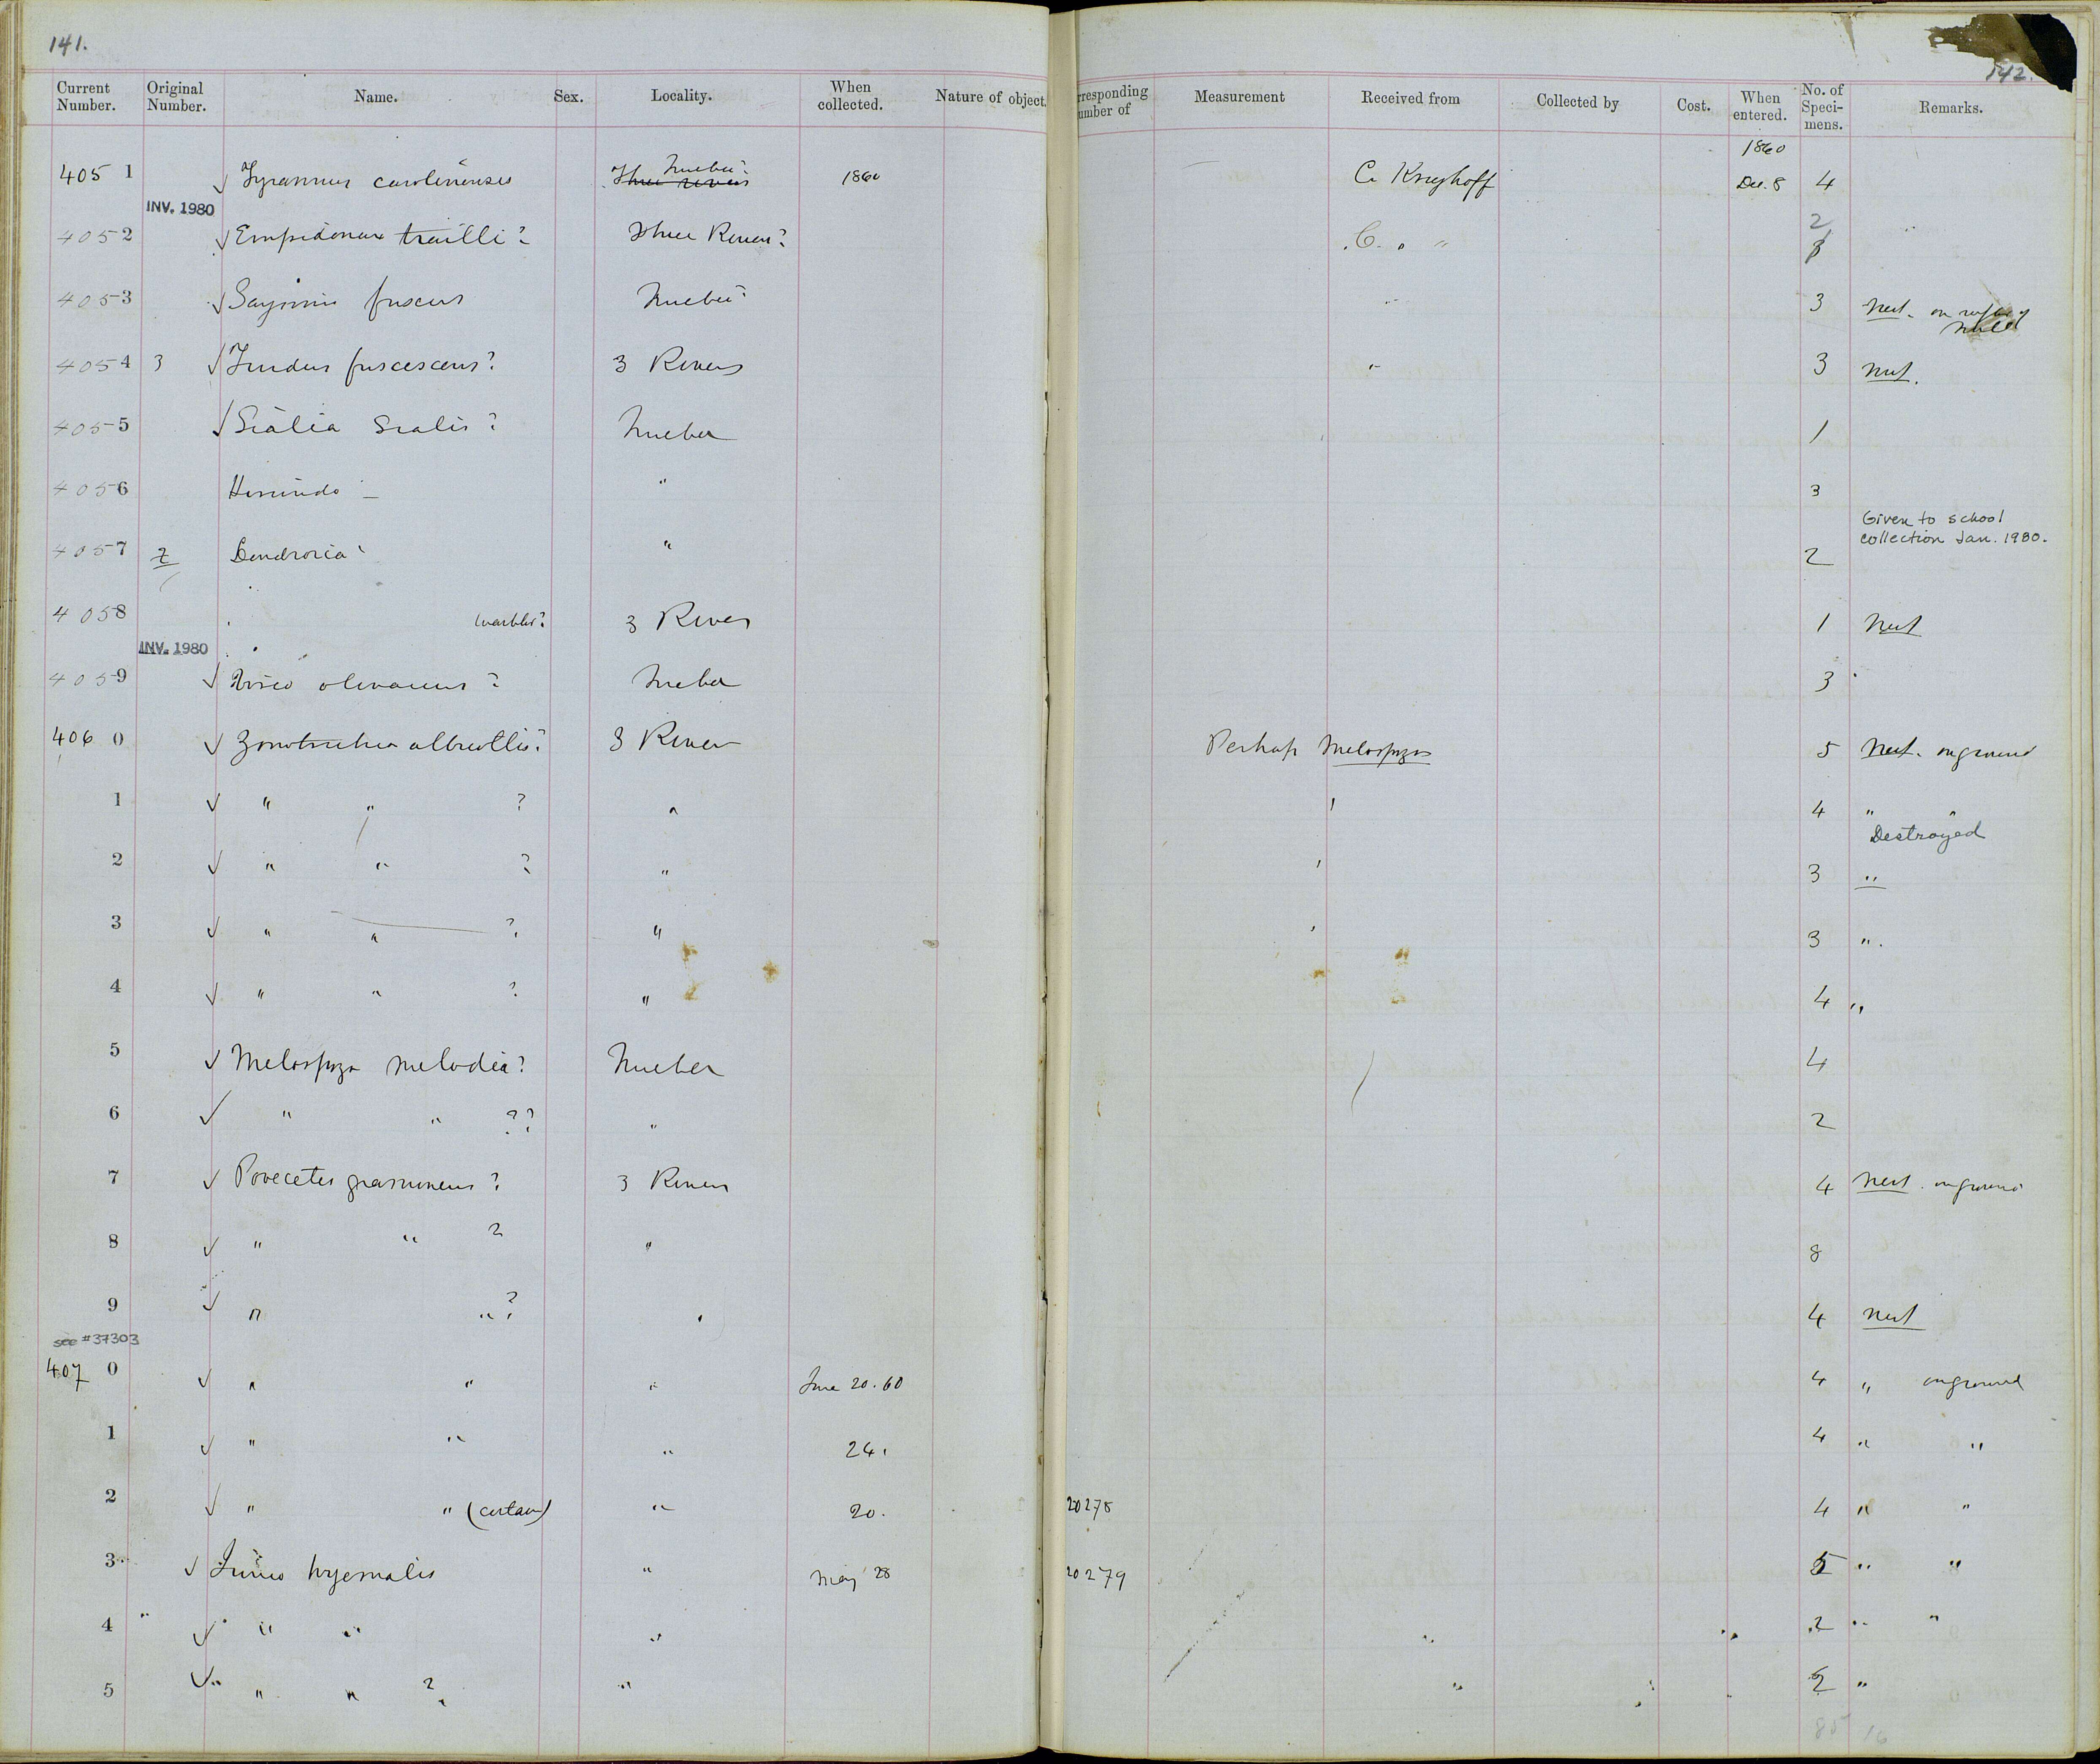 141.
142.
Current Number. Original Number. Name. Sex. Locality. When collected. Nature of object. rresponding umber of Measurement Received from Collected by Cost. When entered. No. of Speci- mens. Remarks.
1860
Quebec
405 1 √ Tyrannus carolinensis Three rivers 1860 C. Krieghoff Dec. 8 4
INV. 1980
2
4052 √ Empidonax trailli? Three Rivers? C. " "
4053 √ Sayornis fuscus Quebec 3 Nest. on
4054 3 √ Turdus fuscescens? 3 Rivers " 3 Nest.
4055 √ Sialia Sialis? Quebec 1
4056 Hirundo — " 3
Given to school
collection Jan. 1980.
4057 2 Dendroica " 2
4058 warbler? 3 Rivers 1 Nest
INV. 1980
4059 √ Vireo olivaceus? Quebec 3
406 0 √ Zonotrichia albicollis? 3 Rivers Perhaps Melospiza 5 Nest. on ground
1 √ " " ? " 4 "
Destroyed
2 √ " " ? " 3 "
3 √ " " ? " 3 ".
4 √ " " ? " 4 "
5 √ Melospiza melodia? Quebec 4
6 √ " " ?? " 2
7 √ Poocetes gramineus? 3 Rivers 4 Nest. on ground
8 √ " " ? " 8
9 √ " " ? 4 Nest
see #37303
407 0 √ " " " June 20. 60 4 " on ground
1 √ " " " 24. 4 " "
2 √ " " (certain) " 20. 20278 4 " "
3 √ Junco hyemalis " May 28 20279 5 " "
4 √ " " " 2 " "
5 √ " " ? " 2 "
85 16